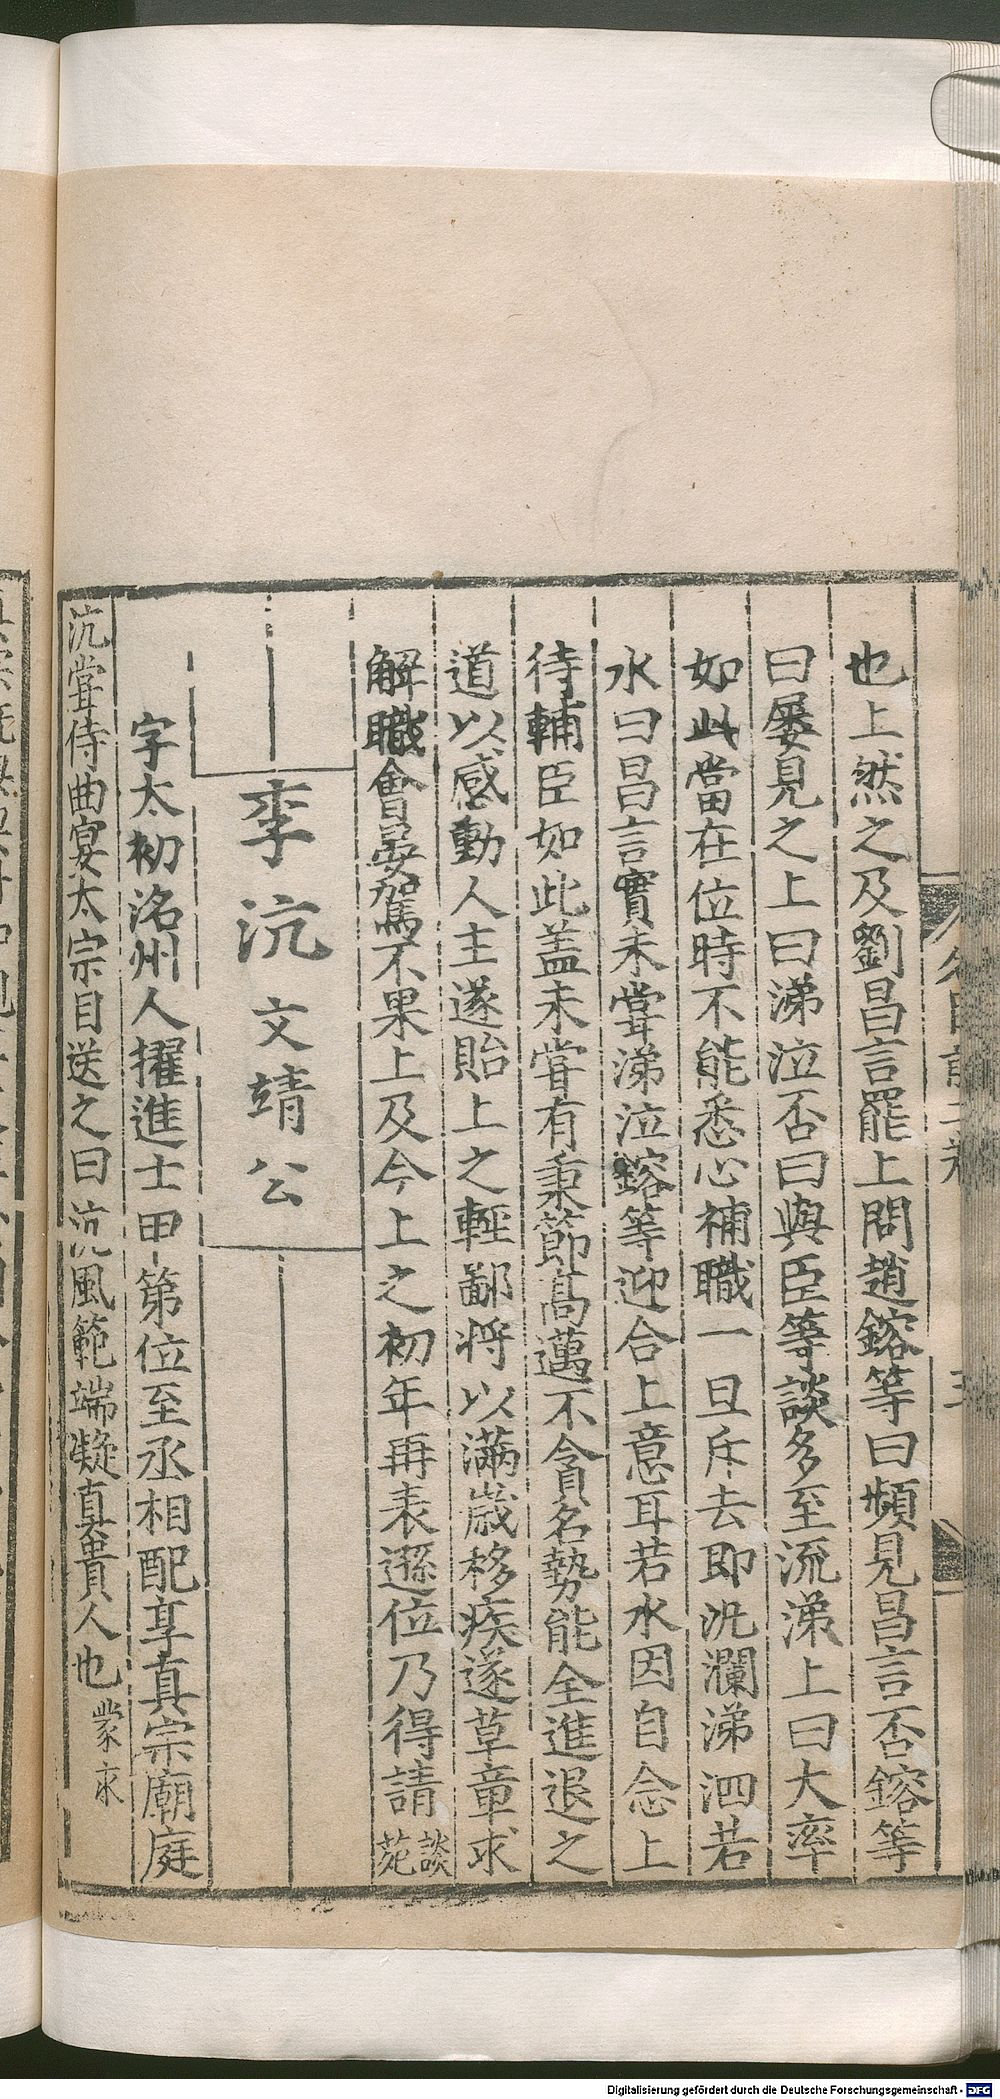 也上然之及劉昌言罷上問趙鎔等曰頻見昌言否鎔等
曰屡見之上曰涕泣否曰與臣等談多至流涕上曰大率
如此當在位時不能悉心補職一旦斥去即汍瀾涕泗若
水曰昌言實未甞涕泣鎔等迎合上意耳若水因自念上
待輔臣如此盖未甞有秉節髙邁不貪名勢能全進退之
道以感動人主遂貽上之輕鄙将以滿歲移疾遂草章求
解職會晏駕不果上及今上之初年再表遜位乃得請談苑
李沆 文靖公
字太初洺州人擢進士甲第位至丞相配享真宗廟庭
沆甞侍曲宴太宗目送之曰沆風範端凝真貴人也蒙求
Digitalisierung gefördert durch die Deutsche Forschungsgemeinschaft - DFG